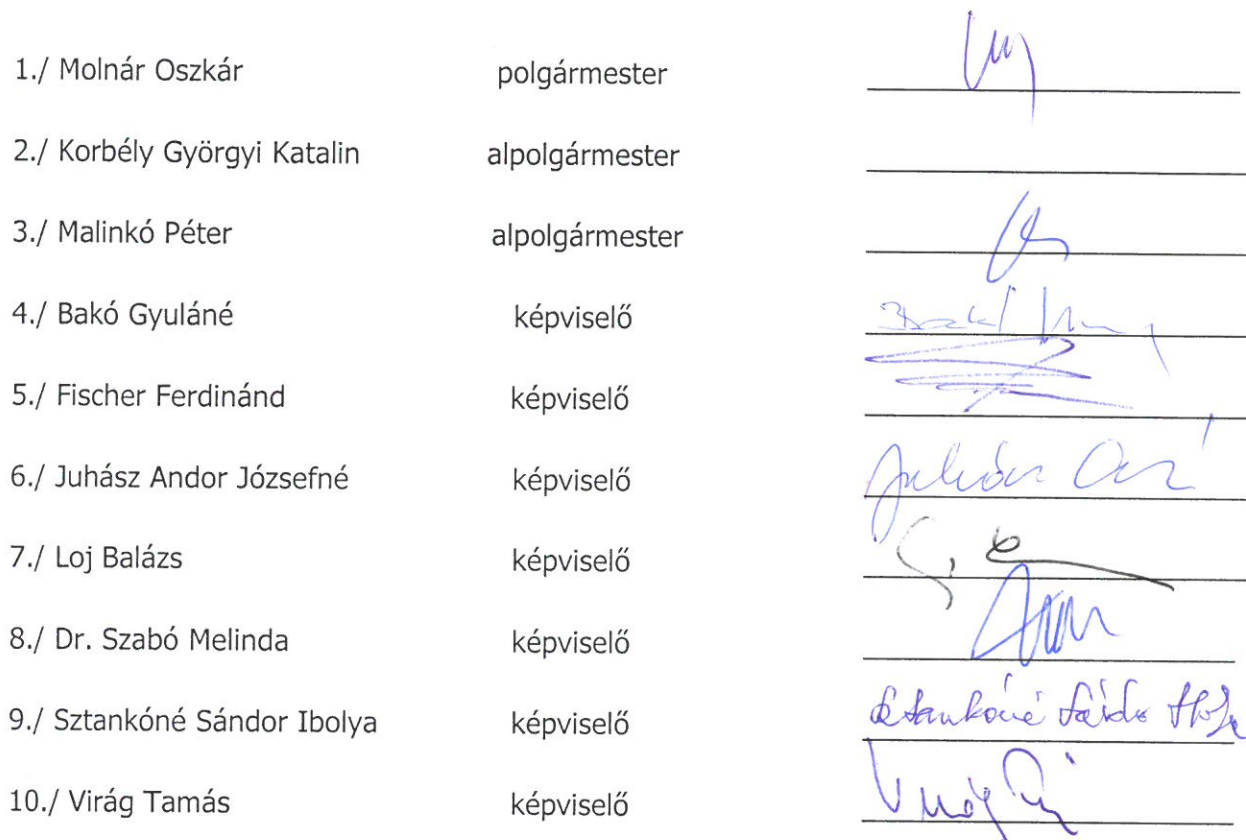 1./ Molnár Oszkár polgármester
2./ Korbély Györgyi Katalin alpolgármester
3./ Malinkó Péter alpolgármester
4./ Bakó Gyuláné képviselő
5./ Fischer Ferdinánd képviselő
6./ Juhász Andor Józsefné képviselő
7./ Loj Balázs képviselő
8./ Dr. Szabó Melinda képviselő
9./ Sztankóné Sándor Ibolya képviselő
10./ Virág Tamás képviselő